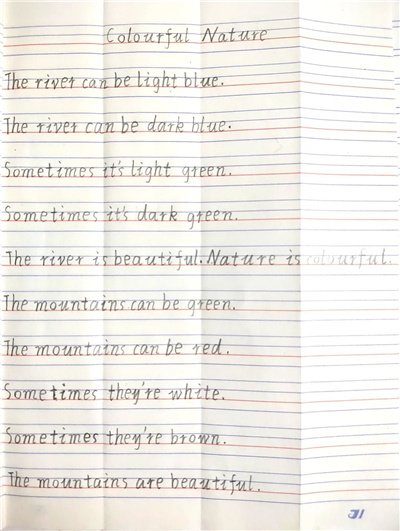 Colourful Nature
The river can be light blue.
The river can be dark blue.
Sometimes it's light green.
Sometimes it's dark green.
The river is beautiful. Nature is colourful.
The mountains can be green.
The mountains can be red.
Sometimes they're white.
Sometimes they're brown.
The mountains are beautiful.